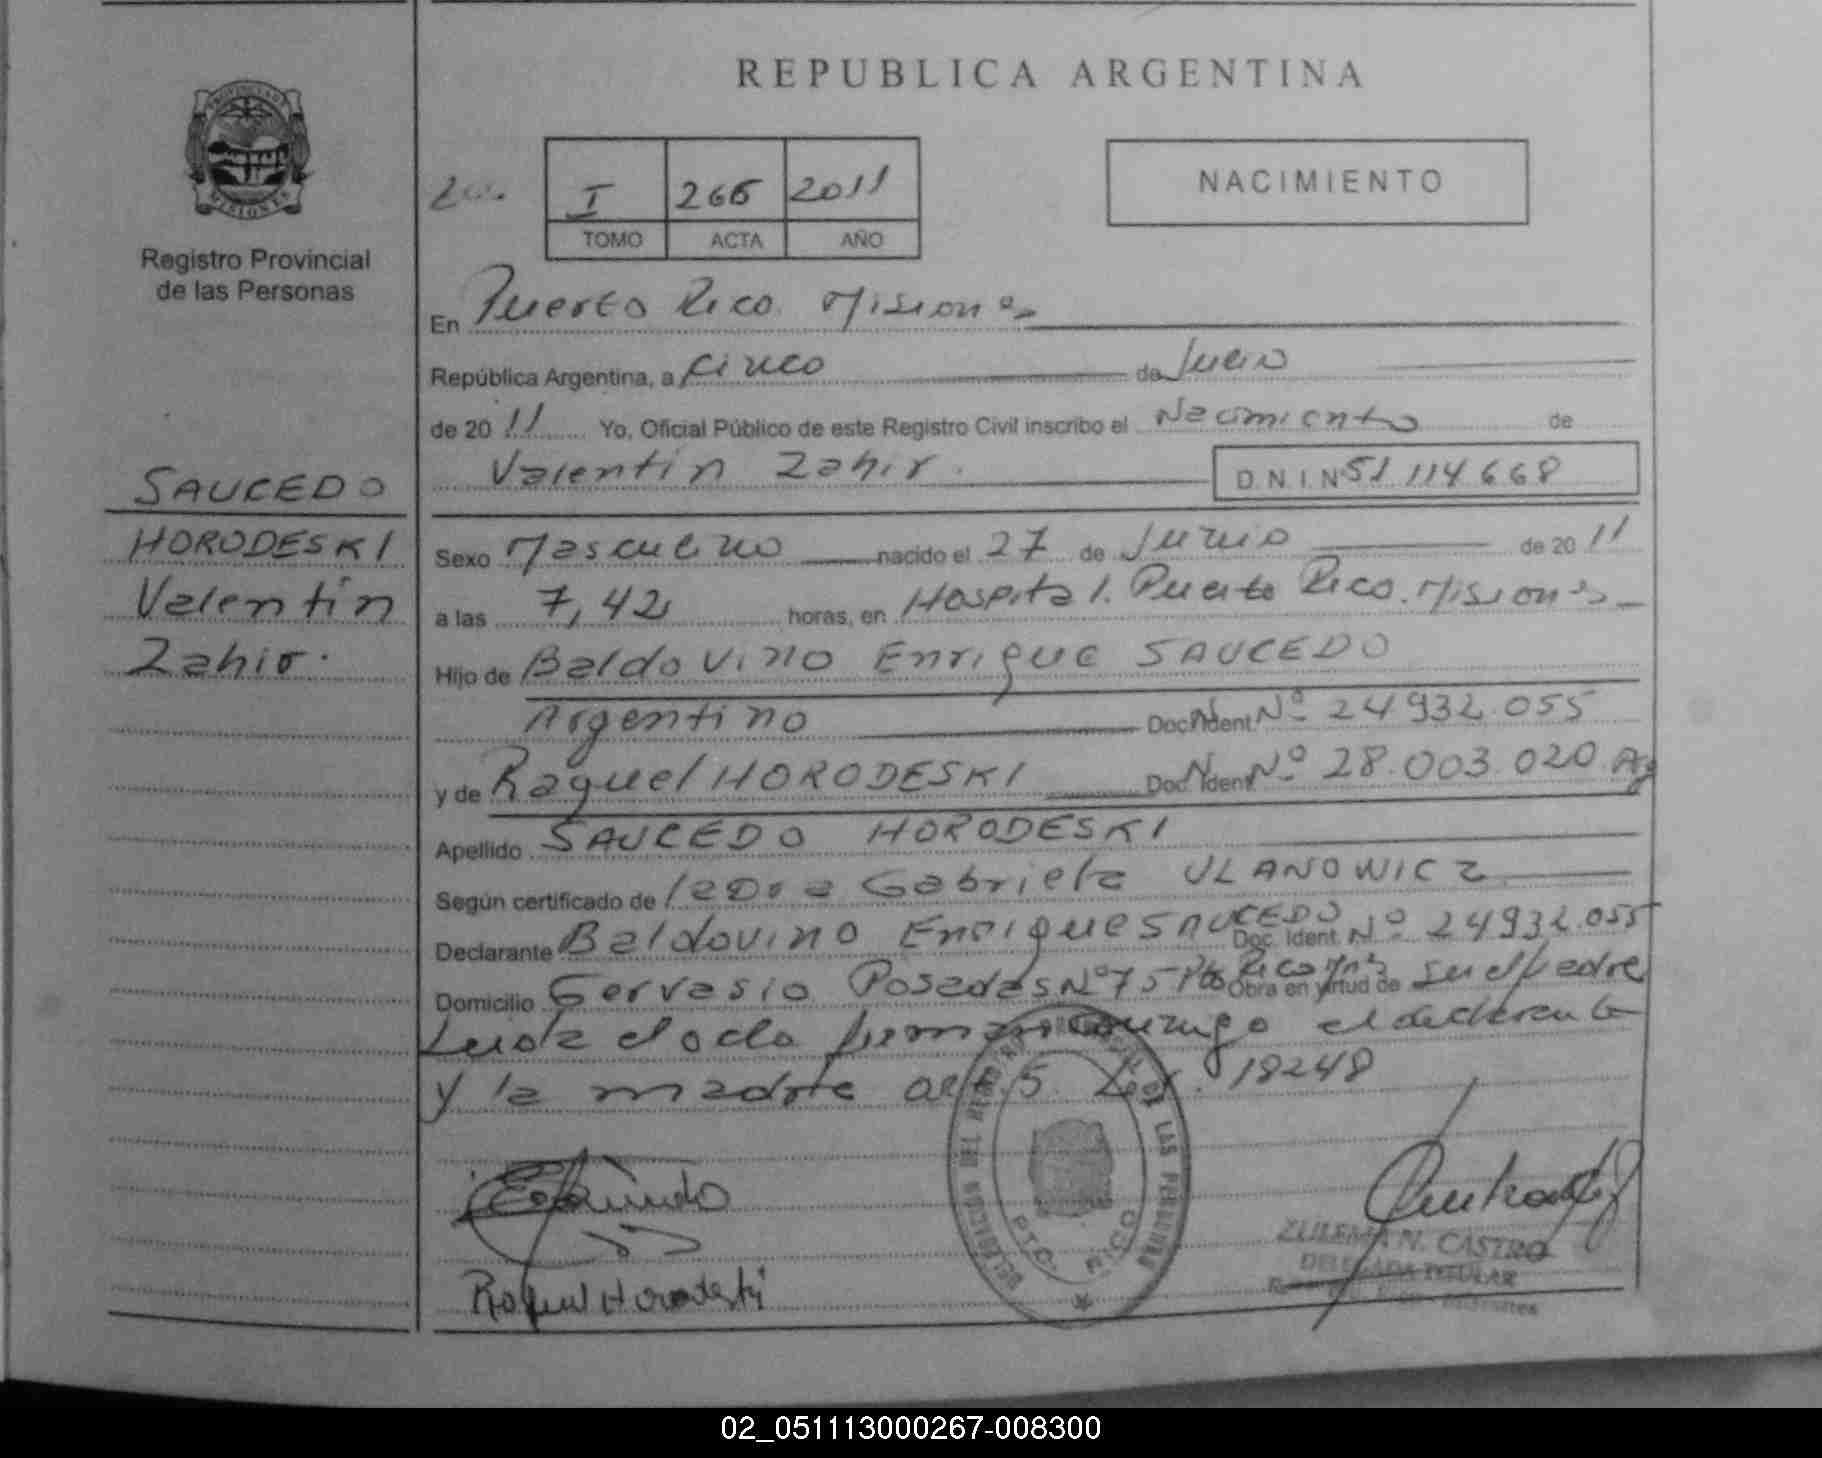 REPUBLICA ARGENTINA
PROVINCIA DE
MISIONES
Registro Provincial
de las Personas
I 266 2011
TOMO ACTA AÑO
NACIMIENTO
En Puerto Rico. Misiones
República Argentina, a cinco de Julio
de 2011 Yo, Oficial Público de este Registro Civil inscribo el Nacimiento de
Valentin Zahir. D.N.I. N° 51 114 668
SAUCEDO
HORODESKI
Valentin
Zahir.
Sexo Masculino nacido el 27 de Junio de 2011
a las 7,42 horas, en Hospital. Puerto Rico. Misiones
Hijo de Baldovino Enrique SAUCEDO
Argentino Doc. Ident. Nº 24 932.055
y de Raquel HORODESKI Doc. Ident. Nº 28.003.020 Ag
Apellido SAUCEDO HORODESKI
Según certificado de la Dra Gabriela ULANOWICZ
Declarante Baldovino Enrique SAUCEDO Doc. Ident. Nº 24932.055
Domicilio Gervasio Posadas Nº 75 Pto Rico Mns Obra en virtud de ser el padre
Leida el acta firman conmigo el declarante
y la madre art. 5. Ley. 18248
DELEGACION DEL REGISTRO DE LAS PERSONAS
PTO. RICO
Raquel Horodeski
ZULEMA N. CASTRO
DELEGADA TITULAR
02_051113000267-008300